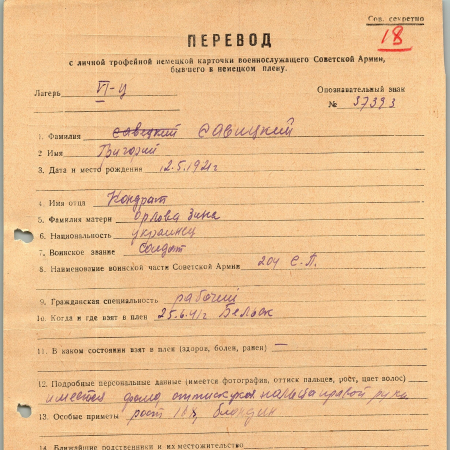 Сов. секретно
18
ПЕРЕВОД
с личной трофейной немецкой карточки военнослужащего Советской Армии,
бывшего в немецком плену.
Лагерь VI-Ц
Опознавательный знак
№ 37393
1. Фамилия савецкий САВИЦКИЙ
2 Имя Григорий
3. Дата и место рождения 12.5.1921г
4. Имя отца Кондрат
5. Фамилия матери Орлова Зина
6. Национальность украинец
7. Воинское звание солдат
8. Наименование воинской части Советской Армии 204 С.П.
9. Гражданская специальность рабочий
10. Когда и где взят в плен 25.6.41г Бельск
11. В каком состоянии взят в плен (здоров, болен, ранен) —
12. Подробные персональные данные (имеется фотография, оттиск пальцев, рост, цвет волос)
имеется фото, оттиск пальца правой руки
13. Особые приметы рост блондин
14. Ближайшие родственники и их местожительство